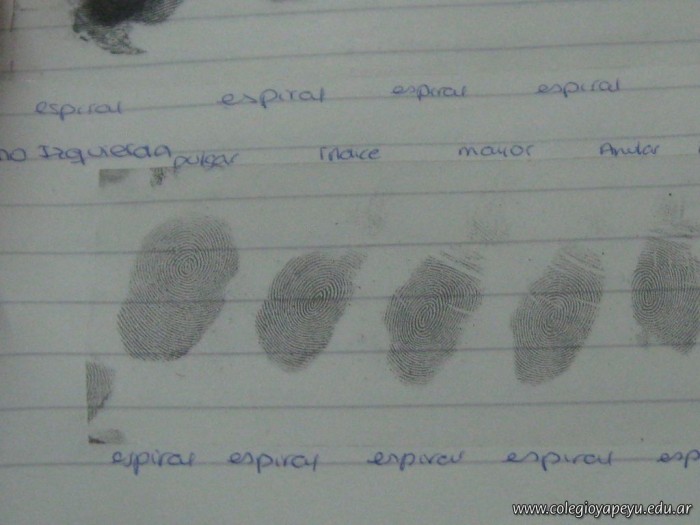 espiral espiral espiral espiral
no Izquierda pulgar Indice mayor Anular
espiral espiral espiral espiral esp
www.colegioyapeyu.edu.ar